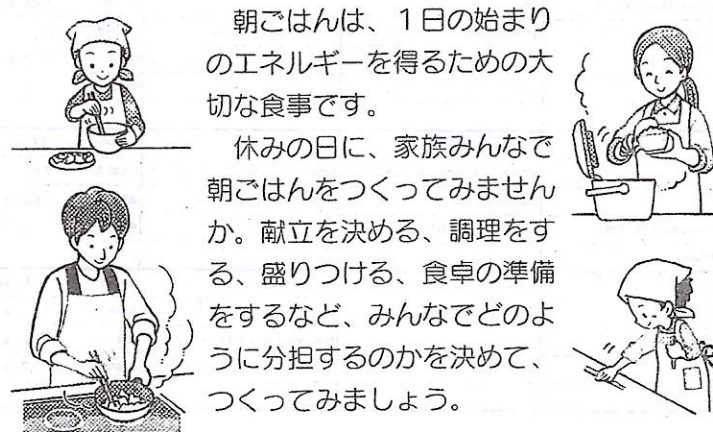 朝ごはんは、1日の始まり
のエネルギーを得るための大
切な食事です。
休みの日に、家族みんなで
朝ごはんをつくってみません
か。献立を決める、調理をす
る、盛りつける、食卓の準備
をするなど、みんなでどのよ
うに分担するのかを決めて、
つくってみましょう。